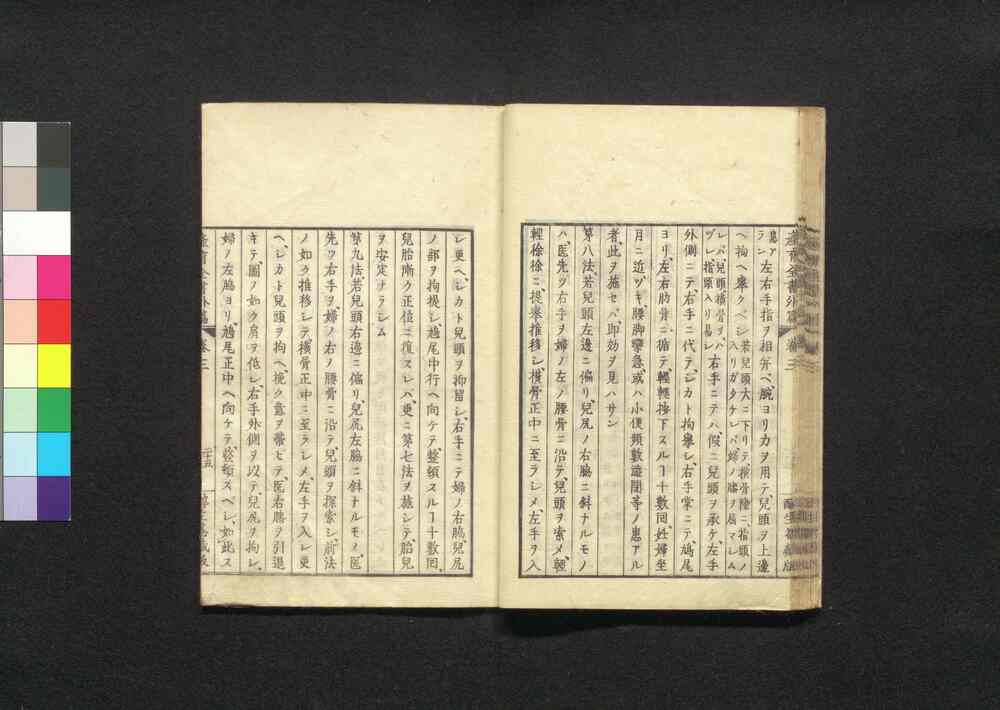 ラン左右手指ヲ相幷ヘ腕ヨリカヲ用テ兒頭ヲ上邊
ヘ拘ヘ擧クベシ若兒頭大ニ下リテ横骨陰ニ指頭ノ
入リガタケレバ婦ノ膝ヲ屈マシム
レバ兒頭横骨ヲ
ヅレ指頭入リ易シ右手ニテハ假ニ兒頭ヲ承ケ左手
外側ニテ右手ニ代テシカト拘擧シ右手掌ニテ鳩尾
ヨリ左右肋骨ニ循テ輕輕按下スルヿ十數囘妊婦坐
月ニ近ヅキ腰脚攣急或ハ小便頻數遺閉等ノ患アル
者此ヲ施セバ即効ヲ見ハサン
第八法若兒頭左邊ニ偏リ兒尻ノ右脇ニ斜ナルモノ
ハ医先ヅ右手ヲ婦ノ左ノ腰骨ニ沿テ兒頭ヲ索メ輕
輕徐徐ニ提擧推移シ横骨正中ニ至ラシメ左手ヲ入
レ更ヘシカト兒頭ヲ抑留シ右手ニテ婦ノ右脇兒尻
ノ部ヲ拘提シ趫尾中行ヘ向ケテ整頓スルヿ十數囘
兒胎漸ク正位ニ復スレバ更ニ第七法ヲ施シテ胎兒
ヲ安定ナラシム
第九法若兒頭右邊ニ偏リ兒尻左脇ニ斜ナルモノハ医
先ヅ右手ヲ婦ノ右ノ腰骨ニ沿テ兒頭ヲ探索シ前法
ノ如ク推移シテ横骨正中ニ至ラシメ左手ヲ入レ更
ヘシカト兒頭ヲ拘ヘ挽ク意ヲ帶ビテ医右膝ヲ引退
キテ圖ノ如ク肩ヲ低レ右手外側ヲ以テ兒尻ヲ拘シ
婦ノ左脇ヨリ趫尾正中ヘ向ケテ整頓スベシ如此ス
産育全書外篇 卷三